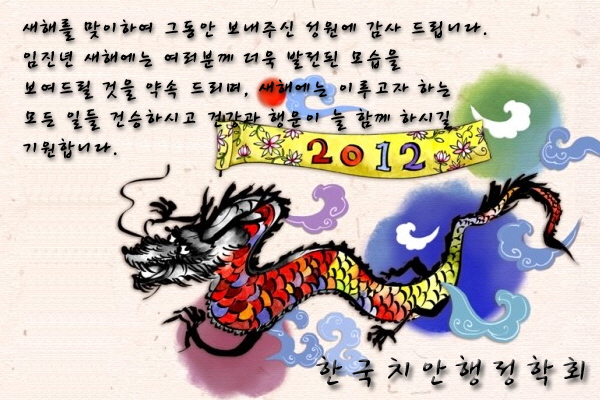 새해를 맞이하여 그동안 보내주신 성원에 감사 드립니다.
임진년 새해에는 여러분께 더욱 발전된 모습을
보여드릴 것을 약속 드리며, 새해에는 이루고자 하는
모든 일들 건승하시고 건강과 행운이 늘 함께 하시길
기원합니다.
2012
한국치안행정학회